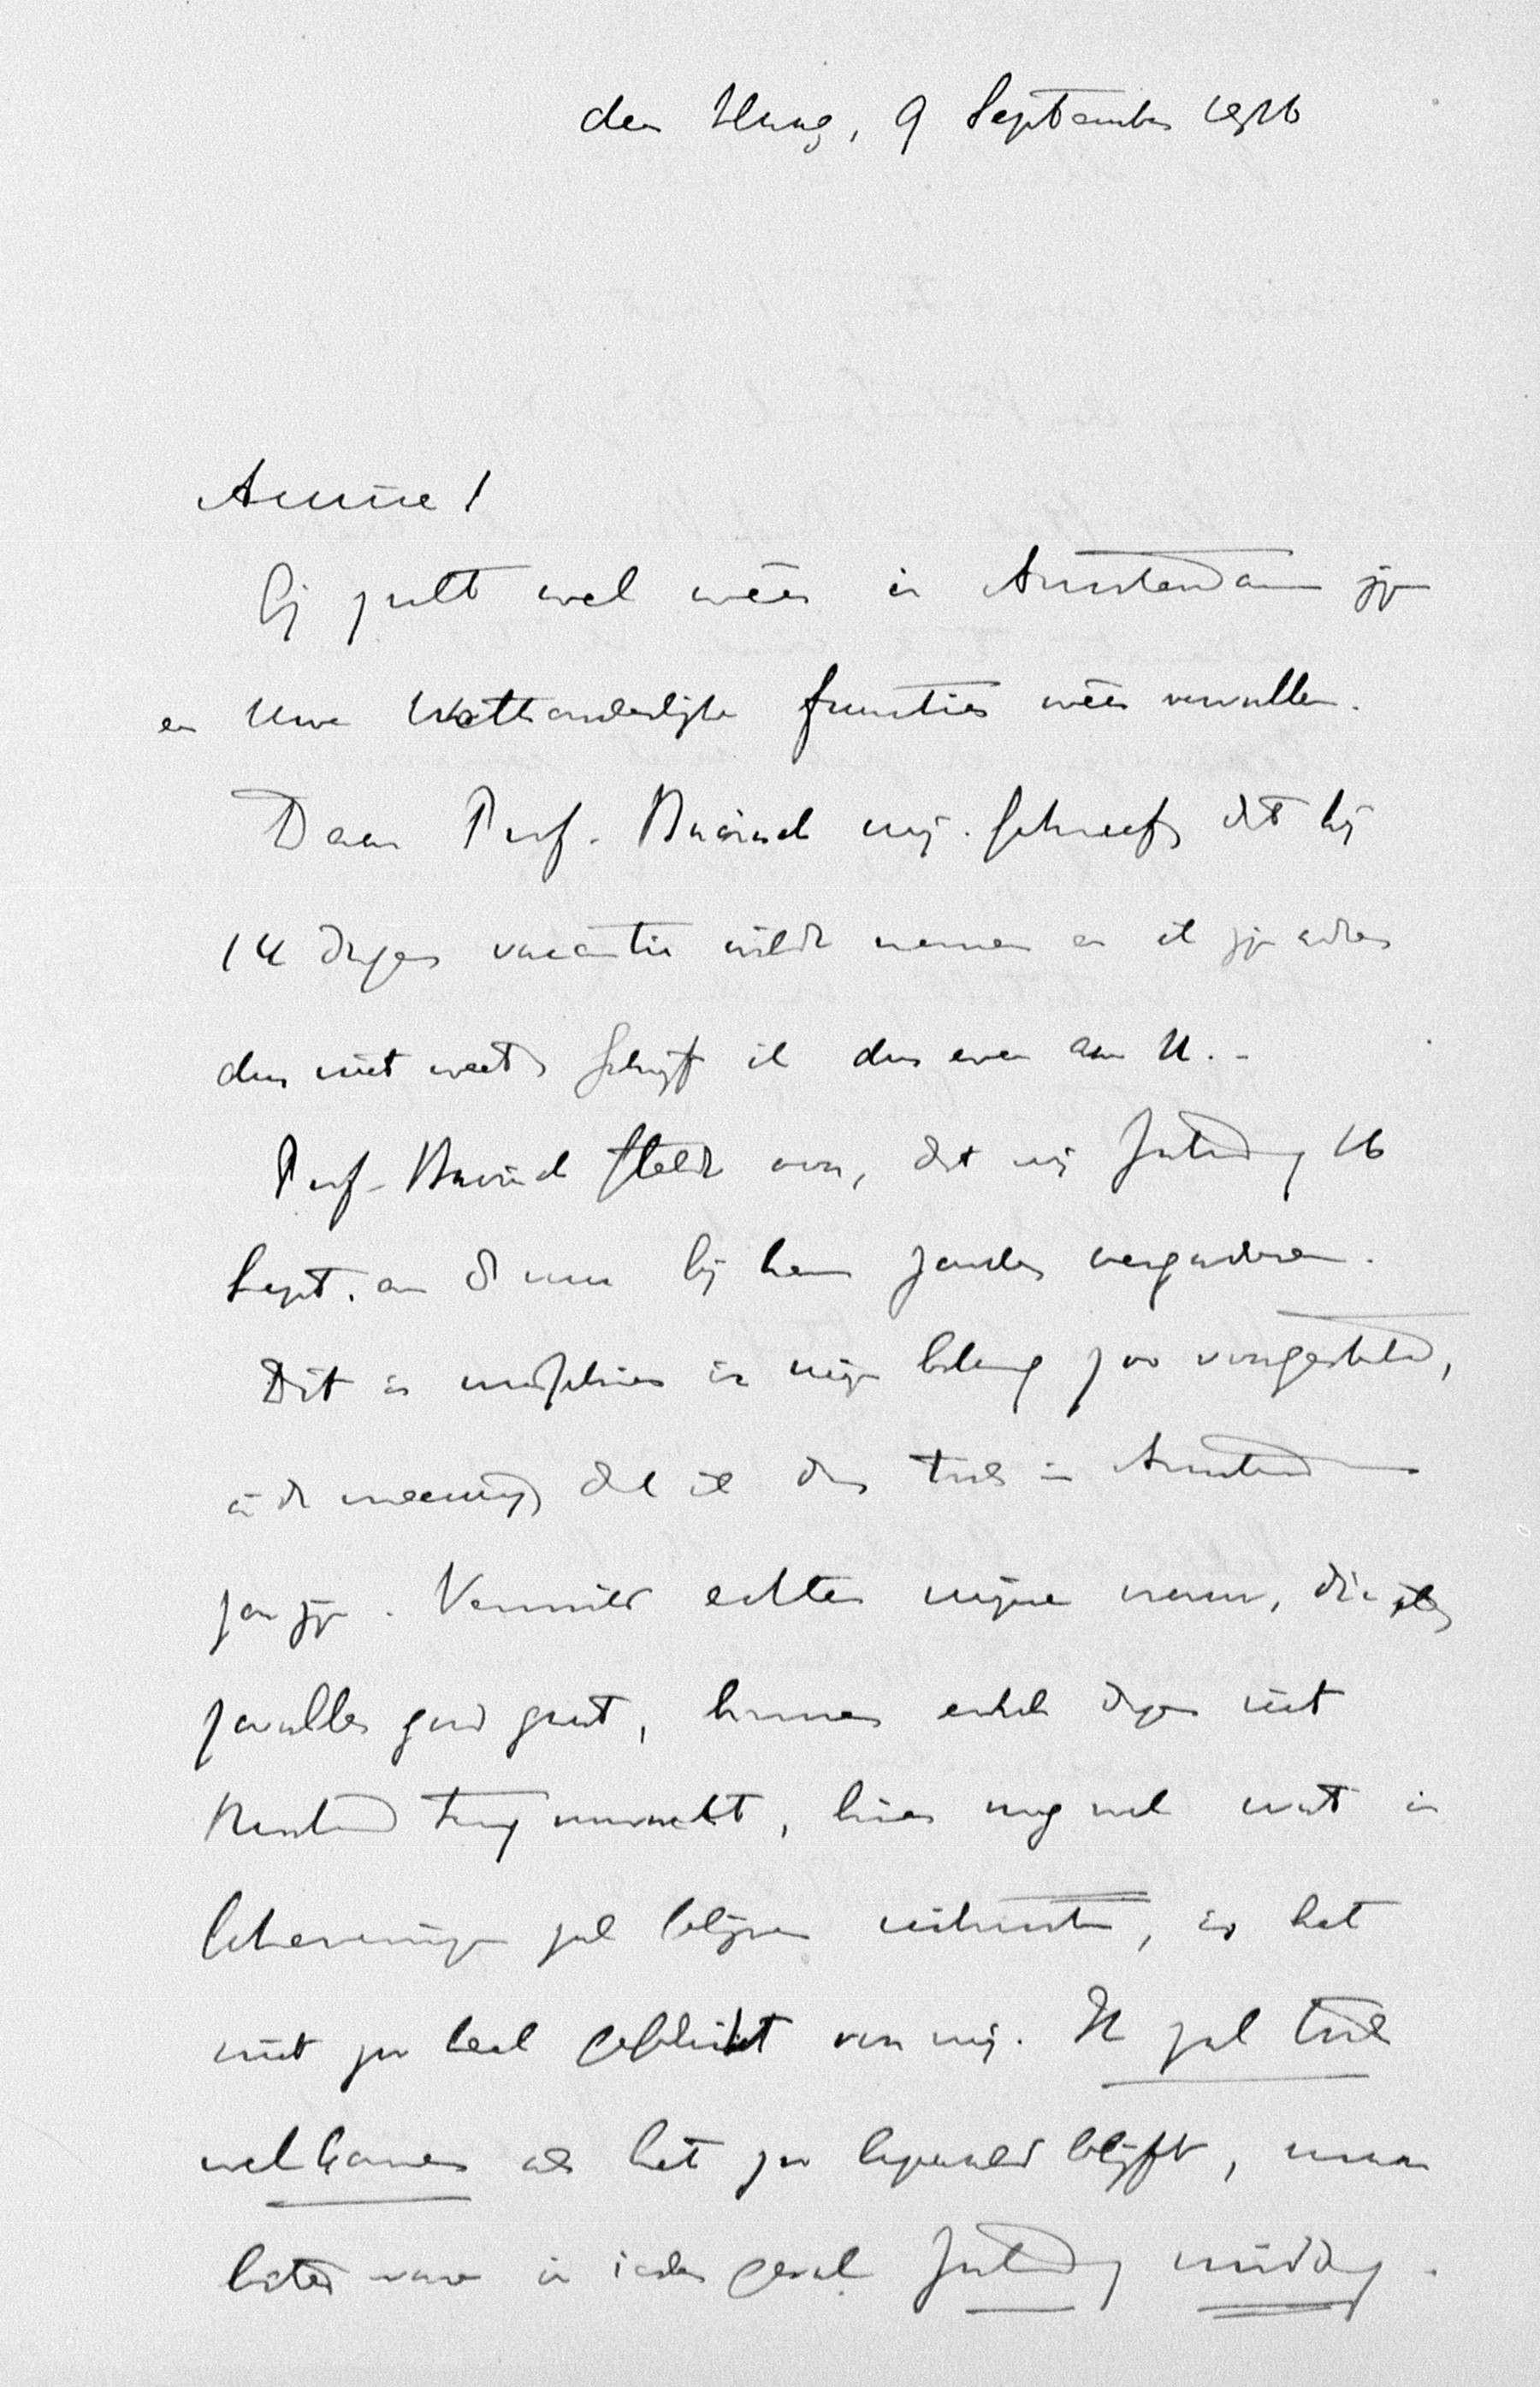 den Haag, 9 September 1916
Amice!
Gij zult wel weer in Amsterdam zijn
en Uwe Wethouderlijke functies weer vervullen.
Daar Prof. mij schreef, dat hij
14 dagen vacantie wilde nemen en ik zijn adres
dus niet weet, schrijf ik dus even aan U.-
Prof. stelde voor, dat wij Zaterdag 16
Sept. om 8 uur bij hem zouden vergaderen.
Dit is misschien in mijn belang zoo voorgesteld,
in de meening, dat ik dan toch in Amsterdam
zou zijn. Vermits echter mijne vrouw, die
goed gaat, binnen enkele dagen uit
terug verwacht, hier nog wel wat in
Scheveningen zal blijven uitrusten, is het
niet zoo heel geschikt voor mij. Ik zal toch
wel komen als het zoo bepaald blijft, maar
beter ware in ieder geval Zaterdag middag.